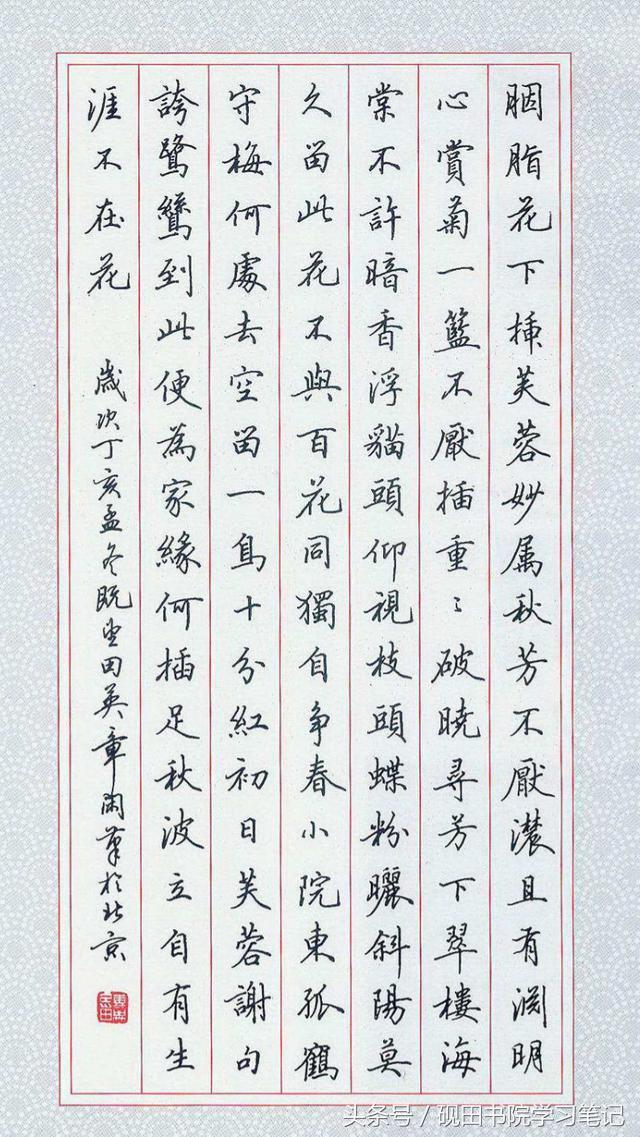 胭脂花下插芙蓉妙属秋芳不厭濃且有淵明
心賞菊一籃不厭插重〻破曉尋芳下翠樓海
棠不許暗香浮貓頭仰視枝頭蝶粉曬斜陽莫
久留此花不與百花同獨自争春小院東孤鶴
守梅何處去空留一鳥十分紅初日芙蓉謝句
誇鷺鷥到此便為家緣何插足秋波立自有生
涯不在花
歲次丁亥孟冬既望田英章閑筆於北京
头条号/砚田书院学习笔记